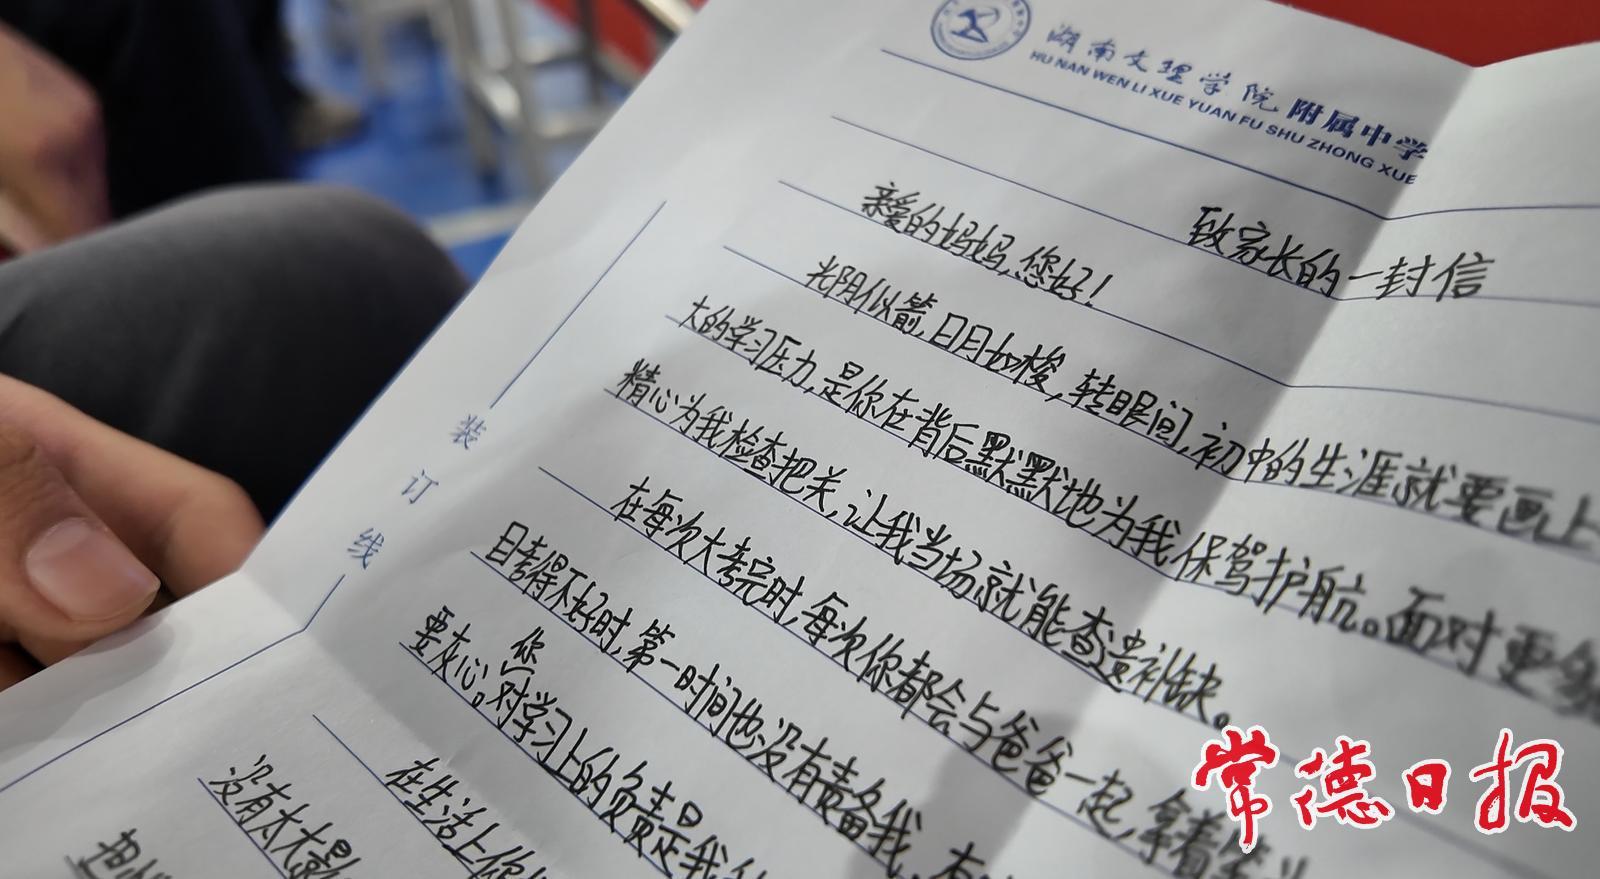 湖南文理学院 附属中学
HU NAN WEN LI XUE YUAN FU SHU ZHONG XUE
致家长的一封信
亲爱的妈妈,您好!
光阴似箭,日月如梭,转眼间,初中的生涯就要画上
大的学习压力,是你在背后默默地为我保驾护航。面对更多
精心为我检查把关,让我当场就能查遗补缺。
在每次大考完时,每次你都会与爸爸一起,拿着
目考得不好时,第一时间也没有责备我,
要灰心。你对学习上的负责是我
在生活上你
没有太大
装订线
常德日报